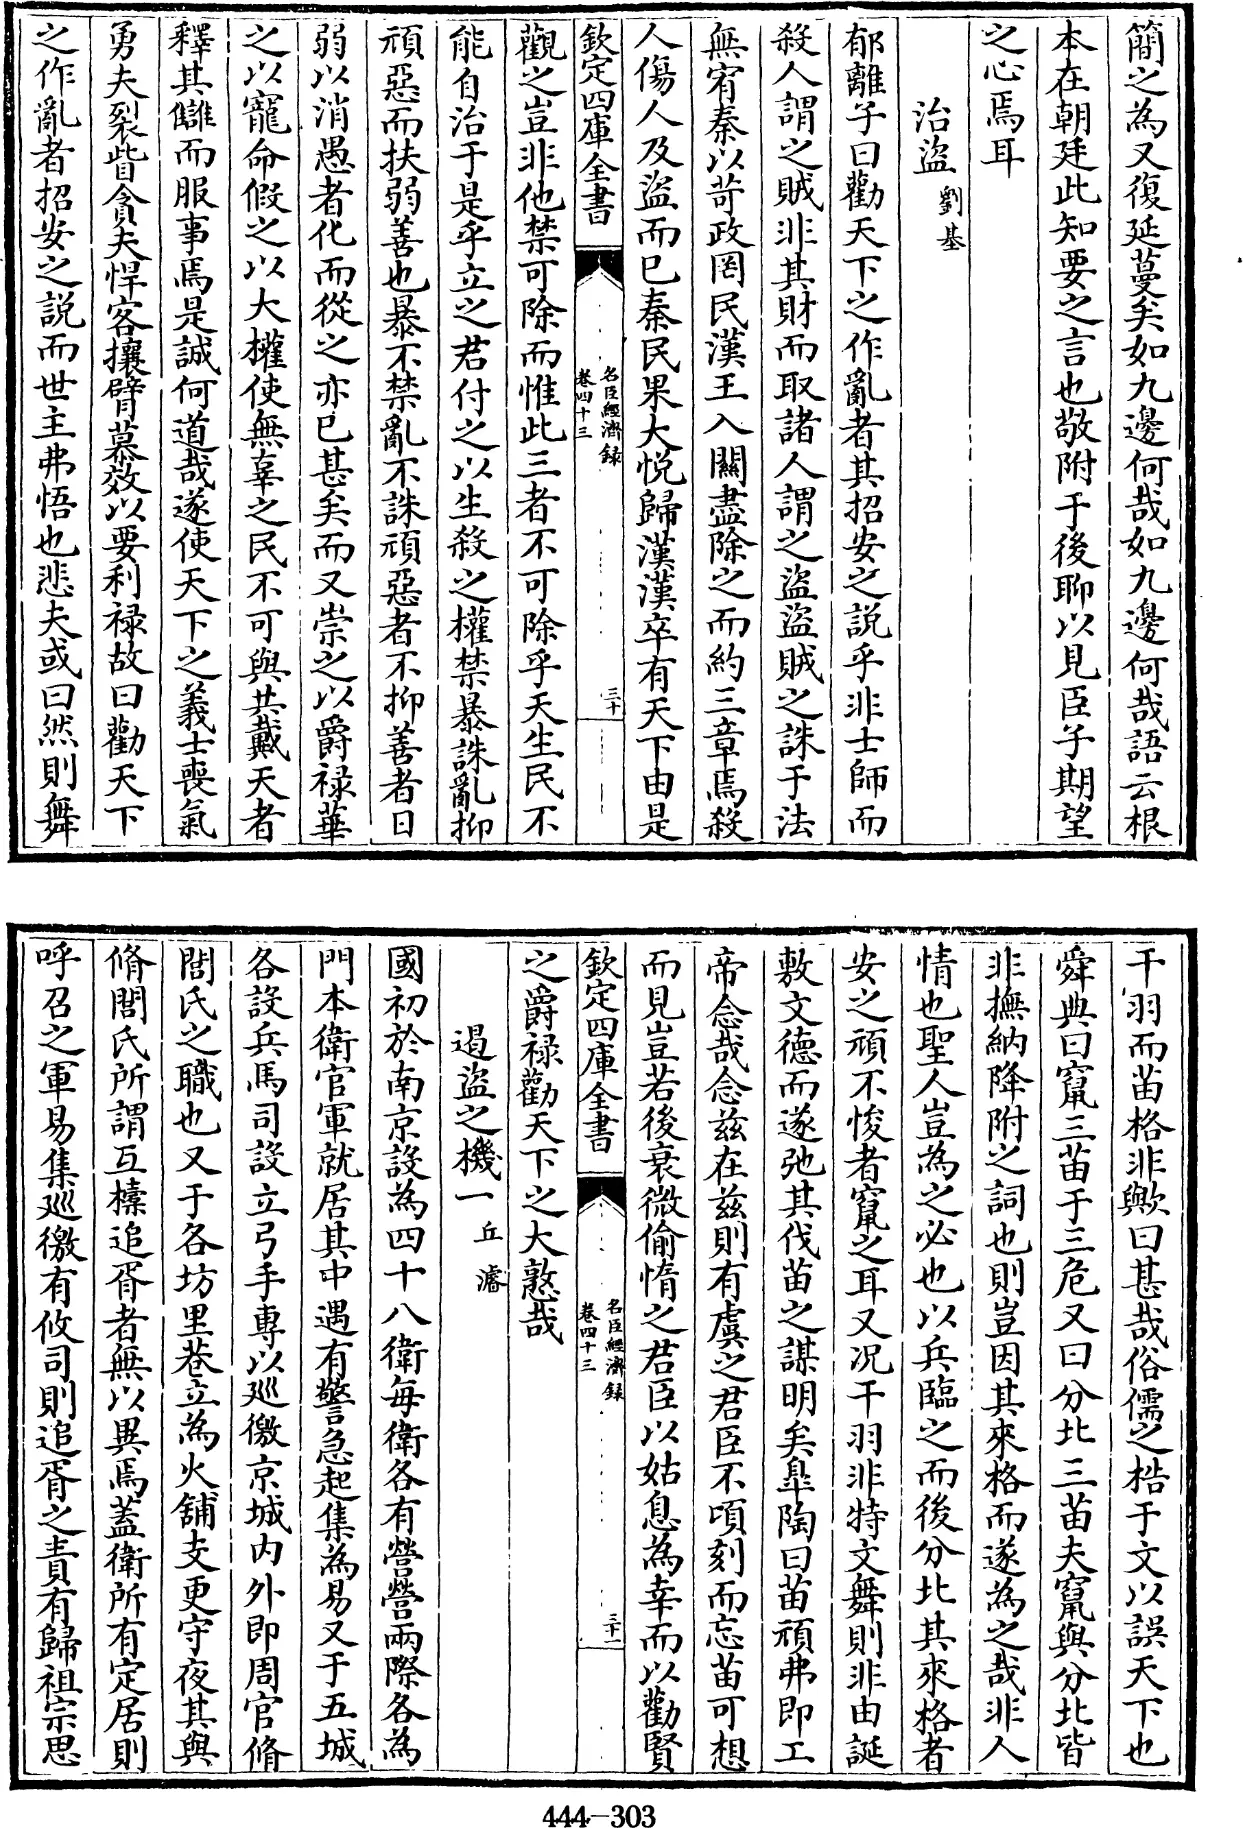 簡之為又復延蔓矣如九邊何哉如九邊何哉語云根
本在朝廷此知要之言也敬附于後聊以見臣子期望
之心焉耳
治盜 劉基
郁離子曰勸天下之作亂者其招安之說乎非士師而
殺人謂之賊非其財而取諸人謂之盜盜賊之誅于法
無宥秦以苛政罔民漢王入關盡除之而約三章焉殺
人傷人及盜而已秦民果大悅歸漢漢卒有天下由是
欽定四庫全書 名臣經濟録 卷四十三 三十
觀之豈非他禁可除而惟此三者不可除乎天生民不
能自治于是乎立之君付之以生殺之權禁暴誅亂抑
頑惡而扶弱善也暴不禁亂不誅頑惡者不抑善者日
弱以消愚者化而從之亦已甚矣而又崇之以爵禄華
之以寵命假之以大權使無辜之民不可與共戴天者
釋其讎而服事焉是誠何道哉遂使天下之義士喪氣
勇夫裂眥貪夫悍客攘臂慕效以要利禄故曰勸天下
之作亂者招安之説而世主弗悟也悲夫或曰然則舞
干羽而苗格非歟曰甚哉俗儒之梏于文以誤天下也
舜典曰竄三苗于三危又曰分北三苗夫竄與分北皆
非撫納降附之詞也則豈因其來格而遂為之哉非人
情也聖人豈為之必也以兵臨之而後分北其來格者
安之頑不悛者竄之耳又况干羽非特文舞則非由誕
敷文德而遂弛其伐苗之謀明矣臯陶曰苗頑弗即工
帝念哉念兹在兹則有虞之君臣不頃刻而忘苗可想
而見豈若後衰微偷惰之君臣以姑息為幸而以勸賢
欽定四庫全書 名臣經濟録 卷四十三 三十一
之爵禄勸天下之大憝哉
遏盜之機一 丘濬
國初於南京設為四十八衛每衛各有營營兩際各為
門本衛官軍就居其中遇有警急起集為易又于五城
各設兵馬司設立弓手專以廵徼京城内外即周官脩
閭氏之職也又于各坊里巷立為火舖支更守夜其與
脩閭氏所謂互㯿追胥者無以異焉蓋衛所有定居則
呼召之軍易集廵徼有攸司則追胥之責有歸祖宗思
444-303